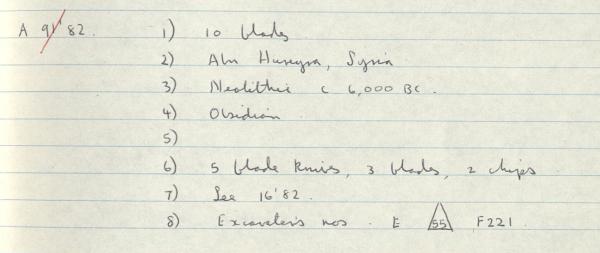 A 91'82. 1) 10 blades
2) Abu Hureyra, Syria
3) Neolithic c 6,000 BC.
4) Obsidian
5)
6) 5 blade knives, 3 blades, 2 chips
7) See 16'82.
8) Excavators nos. E 55 F221